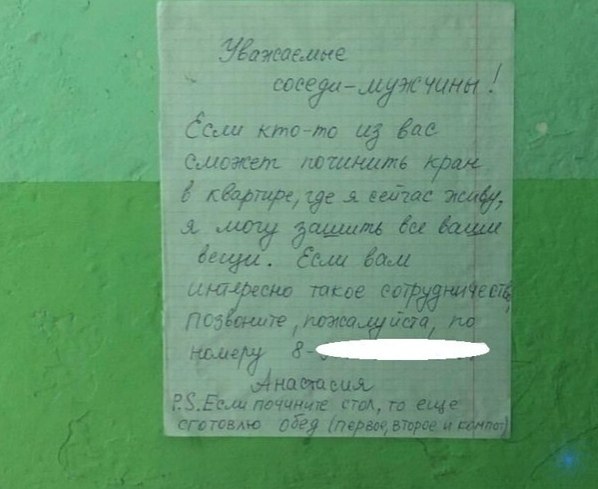 Уважаемые
соседи-мужчины!
Если кто-то из вас
сможет починить кран
в квартире, где я сейчас живу,
я могу зашить все ваши
вещи. Если вам
интересно такое сотрудничеств,
позвоните, пожалуйста, по
номеру 8-
Анастасия
P.S. Если почините стол, то еще
сготовлю обед (первое, второе и компот)